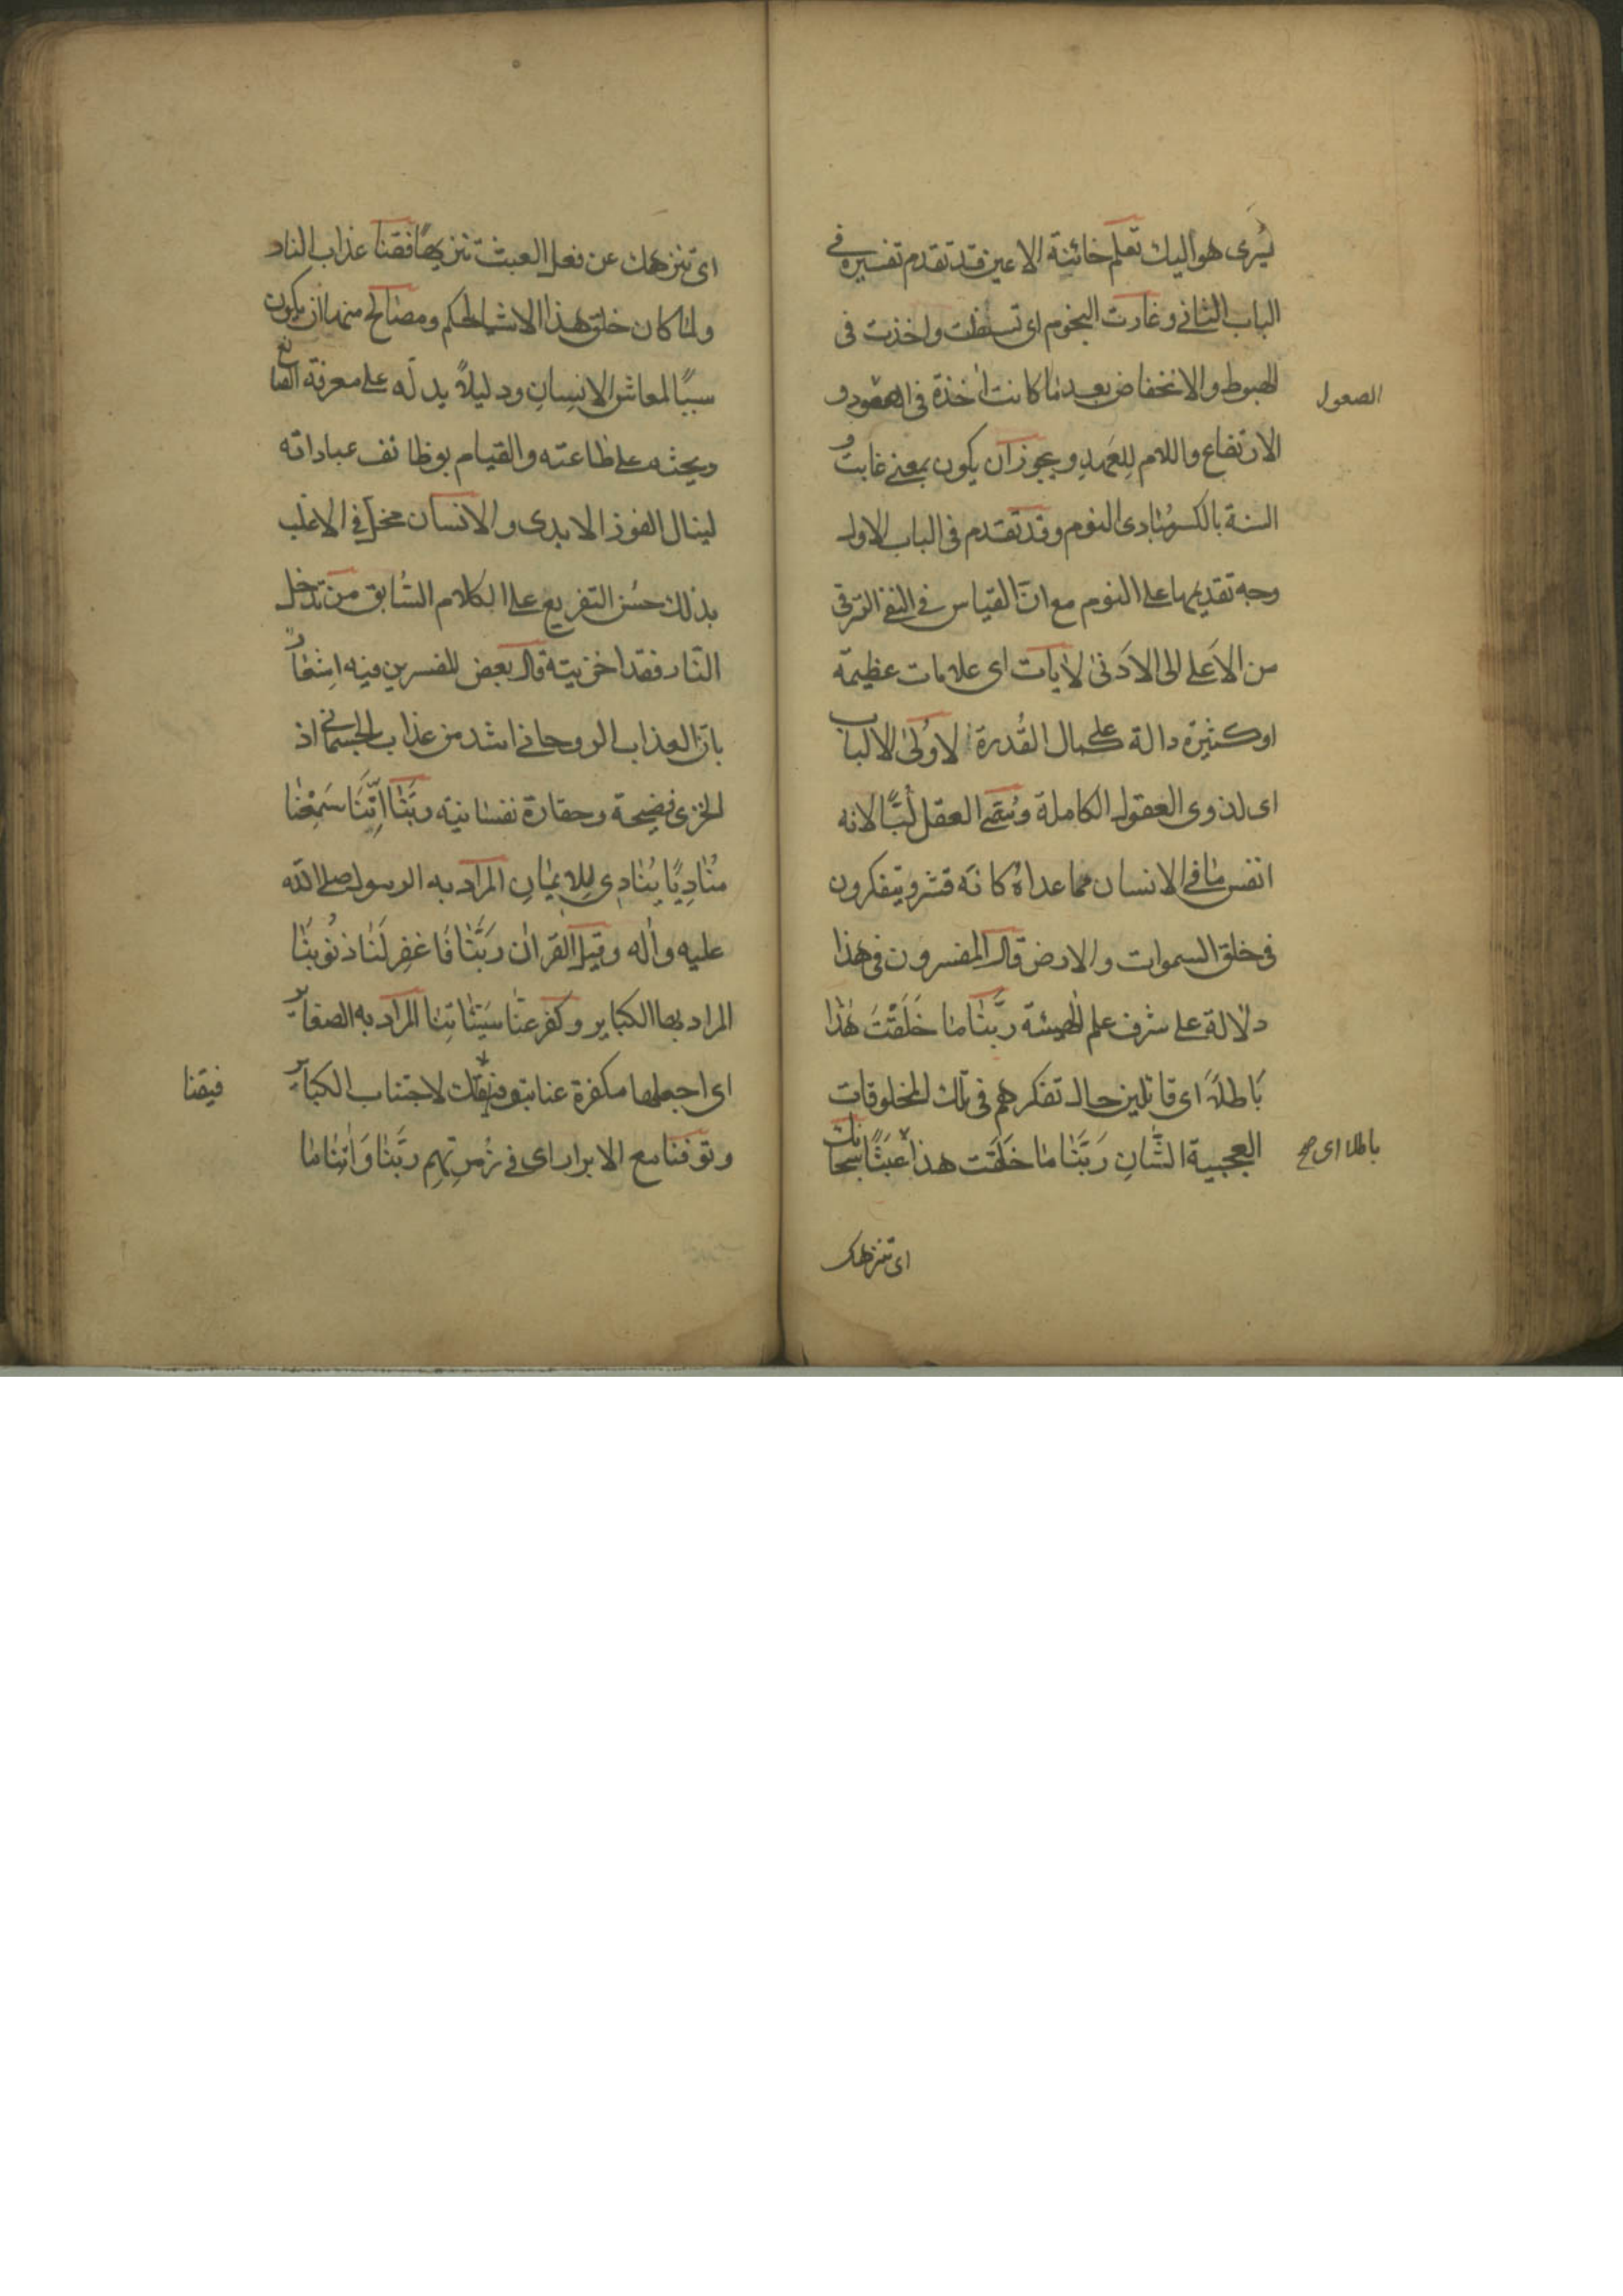 يسرى هو اليك تعلم خائنة الاعين قد تقدم تفسيره في
الباب الثاني وغارت النجوم اى تسفلت واخذت فى
الهبوط والانخفاض بعد ما كانت اخذة فى الصعود و
الصعود
الارتفاع واللام للعهد ويجوز ان يكون بمعنى غابت و
السنة بالكسر مبادى النوم وقد تقدم فى الباب الاول
وجه تقديمها على النوم مع ان القياس فى النفى الترقى
من الاعلى الى الادنى لايات اى علامات عظيمة
او كثيرة دالة على كمال القدرة لاولى الالباب
اى لذوى العقول الكاملة وسمى العقل لبا لانه
انفس ما فى الانسان فما عداه كانه قشر ويتفكرون
فى خلق السموات والارض قال المفسرون فى هذا
دلالة على شرف علم الهيئة ربنا ما خلقت هذا
باطلا اى قائلين حال تفكرهم فى تلك المخلوقات
العجيبة الشان رَبَّنَا ما خَلَقت هذا عَبَثًا سبحانك
باطلا اى صح
اى تنزهك
اى تنزهك عن فعل العبث تنزيها فقنا عذاب النار
ولما كان خلق هذا الاشيا لحكم ومصالح منها ان يكون
سببًا لمعاش الانسان ودليلاً يدله على معرفة الصانع
ويحثه على طاعته والقيام بوظائف عباداته
لينال الفوز الابدى والانسان مخل فى الاغلب
بذلك حسن التفريع على الكلام السابق من تدخل
النار فقد اخزيته قال بعض المفسرين فيه اشعار
بان العذاب الروحانى اشد من عذاب الجسمانى اذ
الخزى فضيحة وحقارة نفسانية ربَّنا اِنَّنَا سَمِعْنا
مُنَادِيًا يُنَادِى لِلِايمَانِ المراد به الرسول صلى الله
عليه واله وقيل القران رَبَّنَا فَاغفِر لَنَا ذنُوبنَا
المراد بها الكباير وكفر عنّا سَيّئاتِنا المراد به الصغاير
اى اجعلها مكفرة عنا بتوفيقك لاجتناب الكباير
وتوفنا مع الابرار اى فى زُمرتِهِم ربَّنا وَاٰتِنا ما